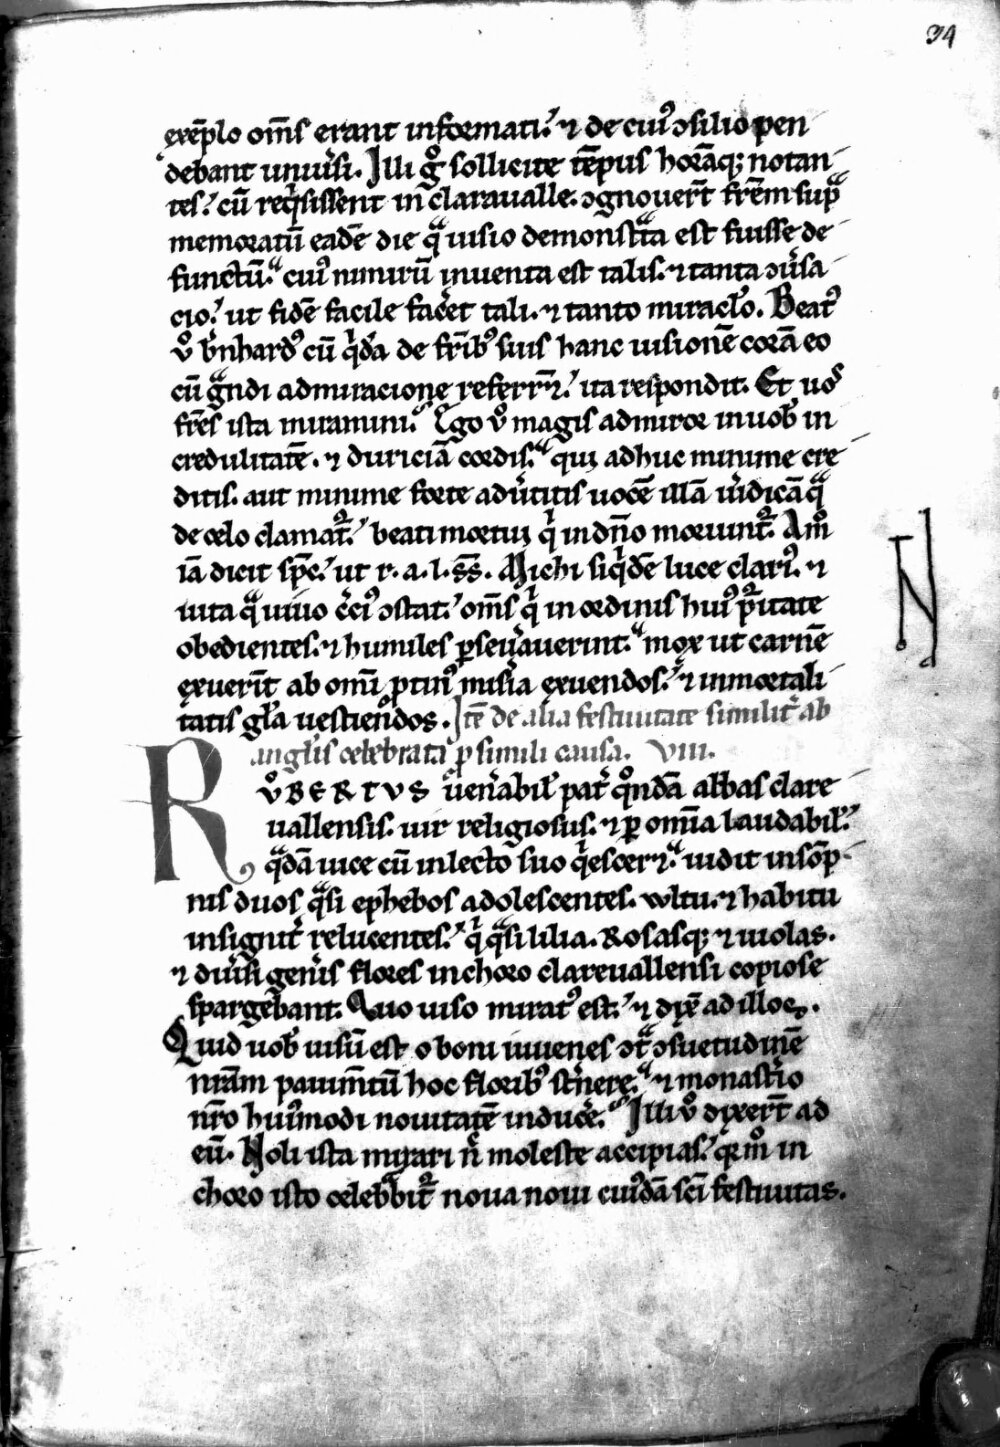 34
exēplo om̄s erant informati.ʼ ⁊ de cuiꝰ ꝯsilio pen
debant uniu͛si. Illi gͦ sollicite tēpus horāqꝫ notan-
tes.ʼ cū reqͥsissent in claraualle. ꝯgnouer̄t fr̄em supᷓ
memoratū eadē die qᷓ uisio demonstᷓta est fuisse de
functū. cuiꝰ nimirū inuenta est talis. ⁊ tanta ꝯu͛sa
cio.ʼ ut fidē facile fac͛et tali. ⁊ tanto miracl̄o. Beatꝰ
uͦ b͛nhardꝰ cū qͥdā de fr̄ibꝰ suis hanc uisionē corā eo
cū gᷓndi admiracione referrēt.ʼ ita respondit. Et uos
fr̄es ista miramini. Ego uͦ magis admiror in uob̄ in
credulitatē. ⁊ duriciā cordis. qui adhuc minime cre
ditis. aut minime forte adu͛titis uocē illā u͛idicā qᷓ
de celo clamat᷑.ʼ beati mortui qͥ in dn̄o moriunt᷑. Amͦ
iā dicit sp̄c.ʼ ut r. a. l. s̄s̄. Michi siqͥdē luce clariꝰ. ⁊
uita qᷓ uiuo c͛ciꝰ ꝯstat.ʼ om̄s qͥ in ordinis huiꝰ pu᷑itate
obedientes. ⁊ humiles ꝑseu͛auerint. mox ut carnē
exuerīt ab omī ꝓtinꝰ mis͛ia exuendos.ʼ ⁊ inmortali
tatis gl̄a uestiendos. Itē de alia festiuitate similit͛ ab
angl̄is celebrata ꝓ simili causa. VIII.
RͦBERTVS uen͛abil̄ pat͛ qͦndā abbas clare
uallensis. uir religiosus. ⁊ ꝑ om̄ia laudabil̄.ʼ
qᷓdā uice cū in lecto suo qͥescer⁊. uidit in sōp-
nis duos qᷓsi ephebos adolescentes. wltu. ⁊ habitu
insignit͛ relucentes.ʼ qͥ qᷓsi lilia. Rosasqꝫ ⁊ uiolas.
⁊ diu͛si gen͛is flores in choro clareuallensi copiose
spargebant. Quo uiso miratꝰ est.ʼ ⁊ dix̄ ad illos.
Quid uob̄ uisū est o boni iuuenes ꝯtᷓ ꝯsuetudinē
nr̄am pauim̄tū hoc floribꝰ st͛nere. ⁊ monast͛io
nr̄o huiꝰmodi nouitatē induc͛e. Illi uͦ dixer̄t ad
eū. Noli ista mirari n͛ moleste accipias.ʼ qm̄ in
choro isto celebᷓbit᷑ noua noui cuiꝰdā sc̄i festiuitas.
N